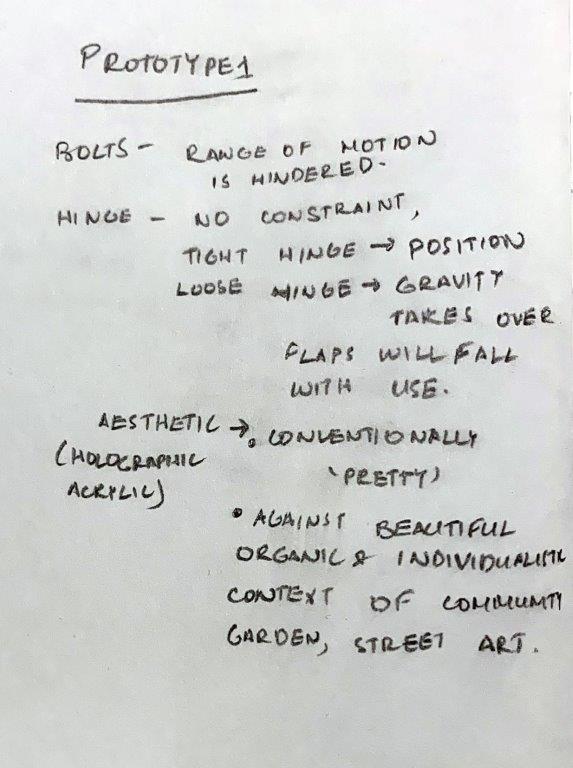 PROTOTYPE 1
BOLTS - RANGE OF MOTION
IS HINDERED.
HINGE - NO CONSTRAINT,
TIGHT HINGE → POSITION
LOOSE HINGE → GRAVITY
TAKES OVER
FLAPS WILL FALL
WITH USE.
AESTHETIC → • CONVENTIONALLY
(HOLOGRAPHIC
'PRETTY)
ACRYLIC)
• AGAINST BEAUTIFUL
ORGANIC & INDIVIDUALISTIC
CONTEXT OF COMMUNITY
GARDEN, STREET ART.